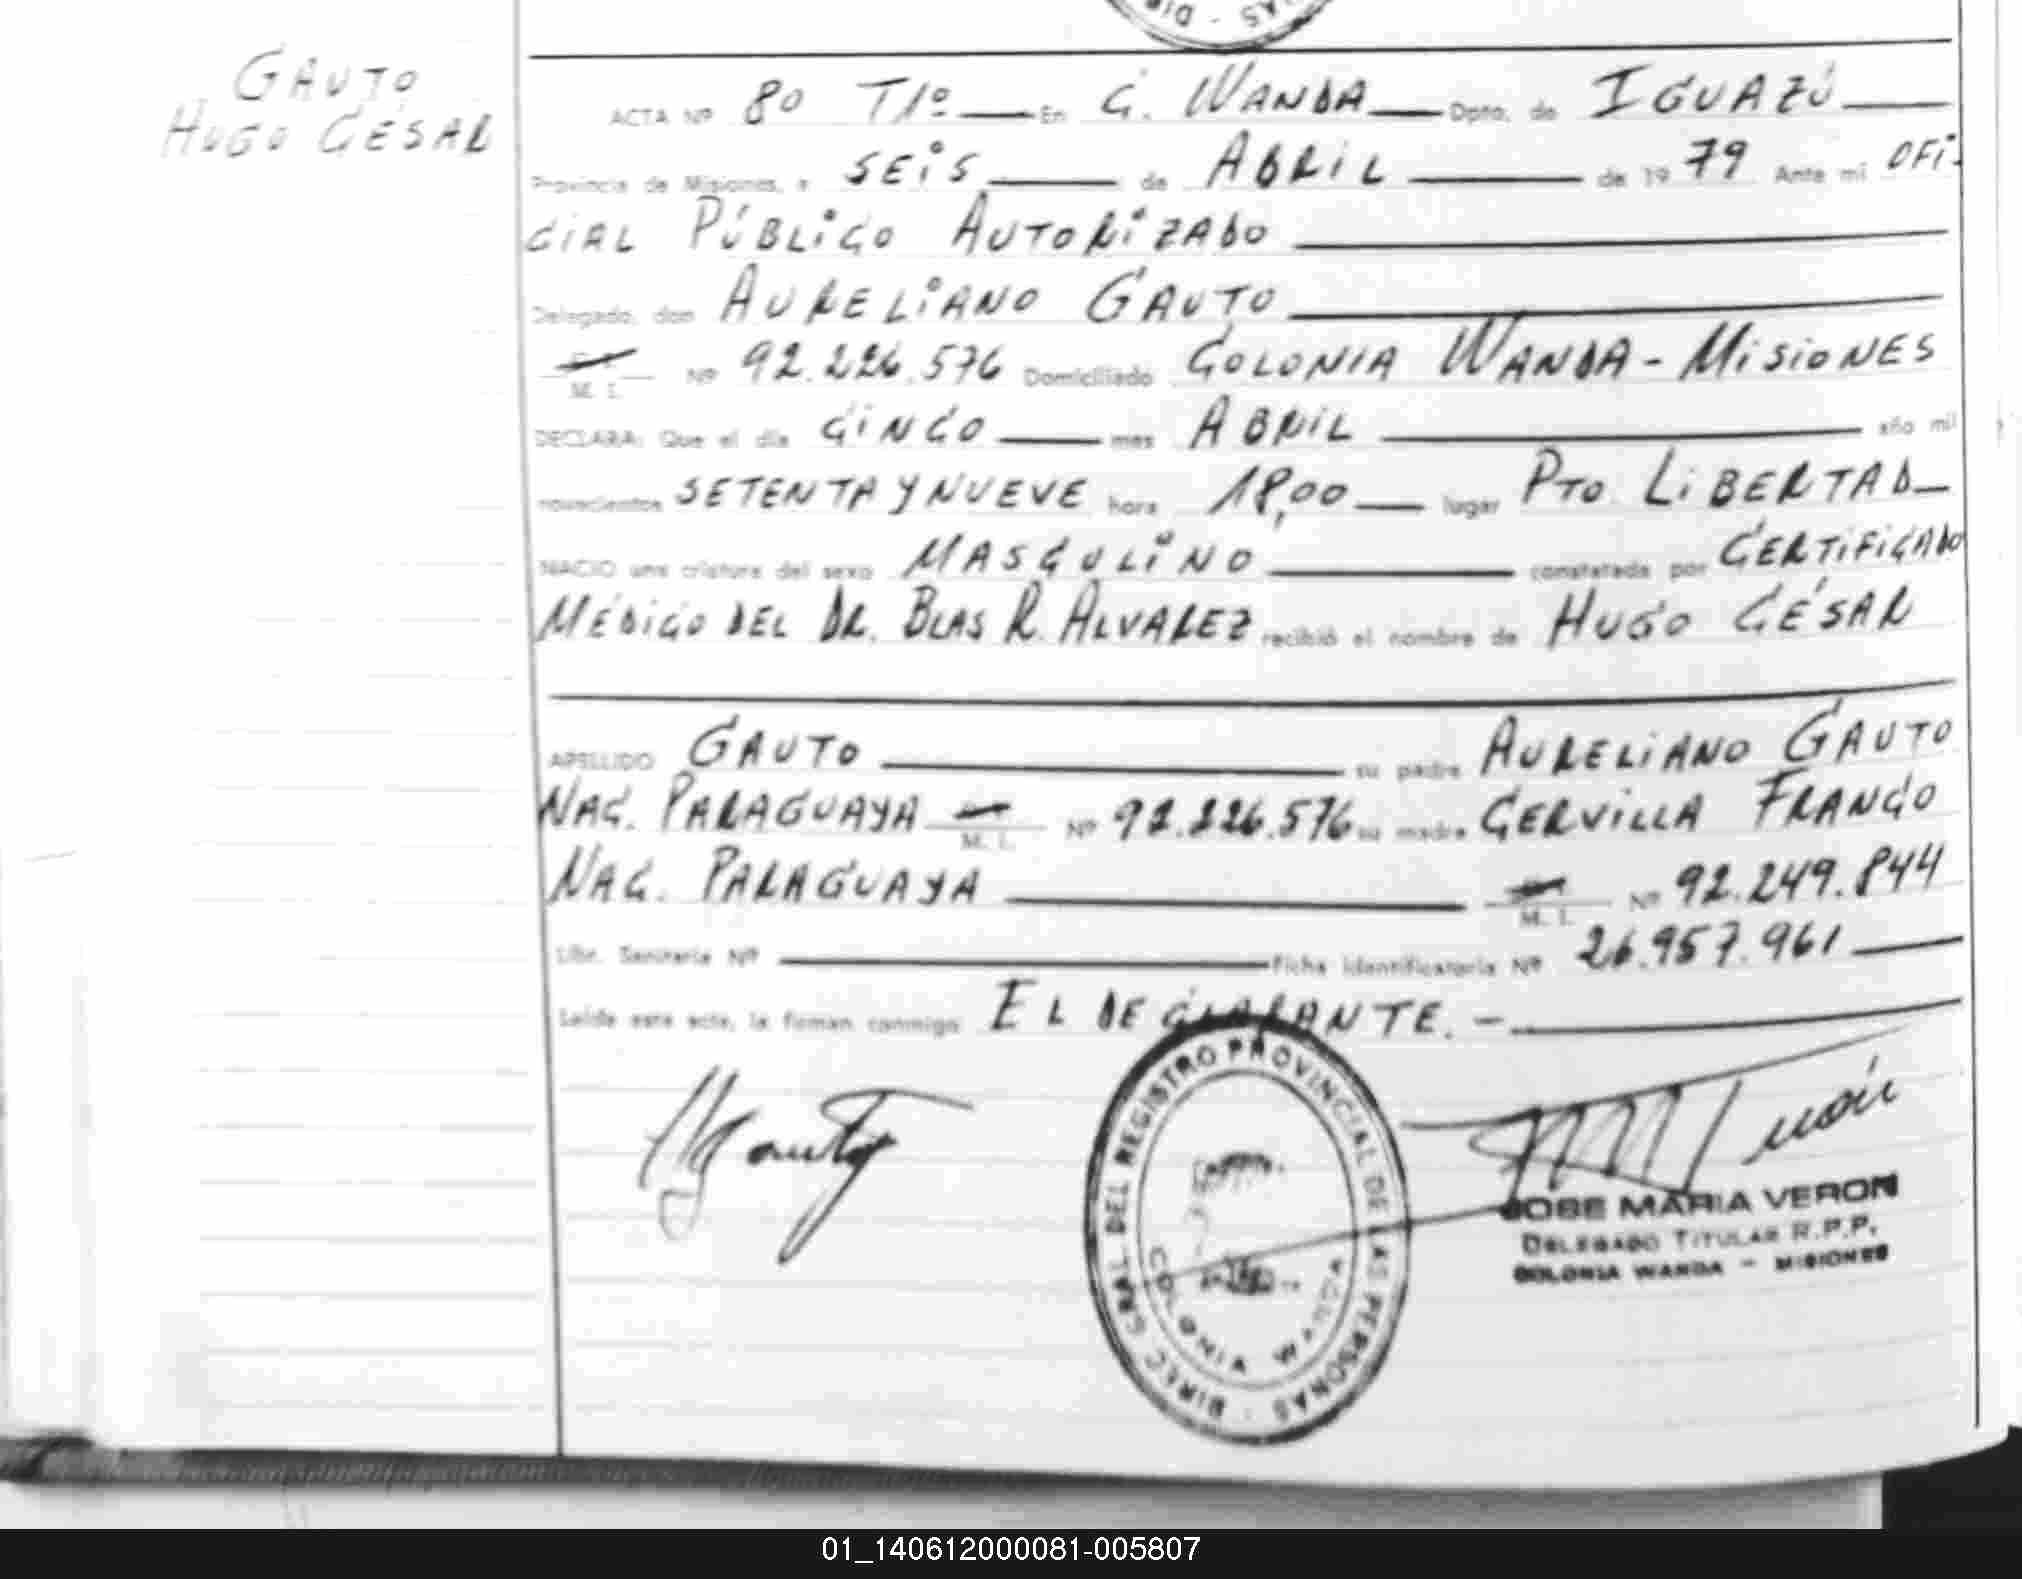 GAUTO
HUGO CÉSAR
ACTA Nº 80 T1º En C. WANDA Dpto. de IGUAZÚ
Provincia de Misiones, a SEIS de ABRIL de 1979 Ante mi OFI-
CIAL PÚBLICO AUTORIZADO
Delegado, don AURELIANO GAUTO
M. I. Nº 92.226.576 Domiciliado COLONIA WANDA - MISIONES
DECLARA: Que el día CINCO mes ABRIL año mil
novecientos SETENTA Y NUEVE hora 18,00 lugar PTO. LIBERTAD
NACIO una criatura del sexo MASCULINO constatada por CERTIFICADO
MÉDICO DEL DR. BLAS R. ALVAREZ recibió el nombre de HUGO CÉSAR
APELLIDO GAUTO su padre AURELIANO GAUTO
NAC. PARAGUAYA M. I. Nº 92.226.576 su madre CERVILLA FRANCO
NAC. PARAGUAYA M. I. Nº 92.249.844
Libr. Sanitaria Nº Ficha identificatoria Nº 26.957.961
Leída este acta, la firman conmigo EL DECLARANTE. -
DIREC. GRAL. DEL REGISTRO PROVINCIAL DE LAS PERSONAS
COLONIA WANDA
JOSE MARIA VERON
DELEGADO TITULAR R.P.P.
COLONIA WANDA - MISIONES
01_140612000081-005807